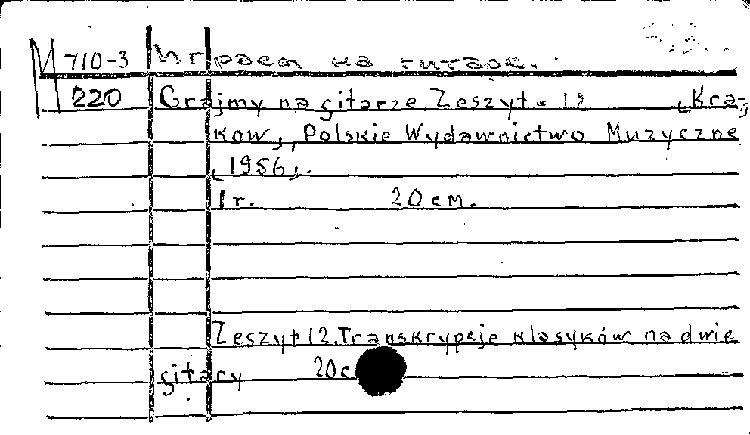 М 710-3 Играем на гитаре.
220 Grajmy na gitarze. Zeszyt. 12 [Kra-
kow], Polskie Wydawnictwo Muzyczne
[1956].
1r. 20 см.
Zeszyt 12. Transkrypcje klasyków na dwie
gitary 20c